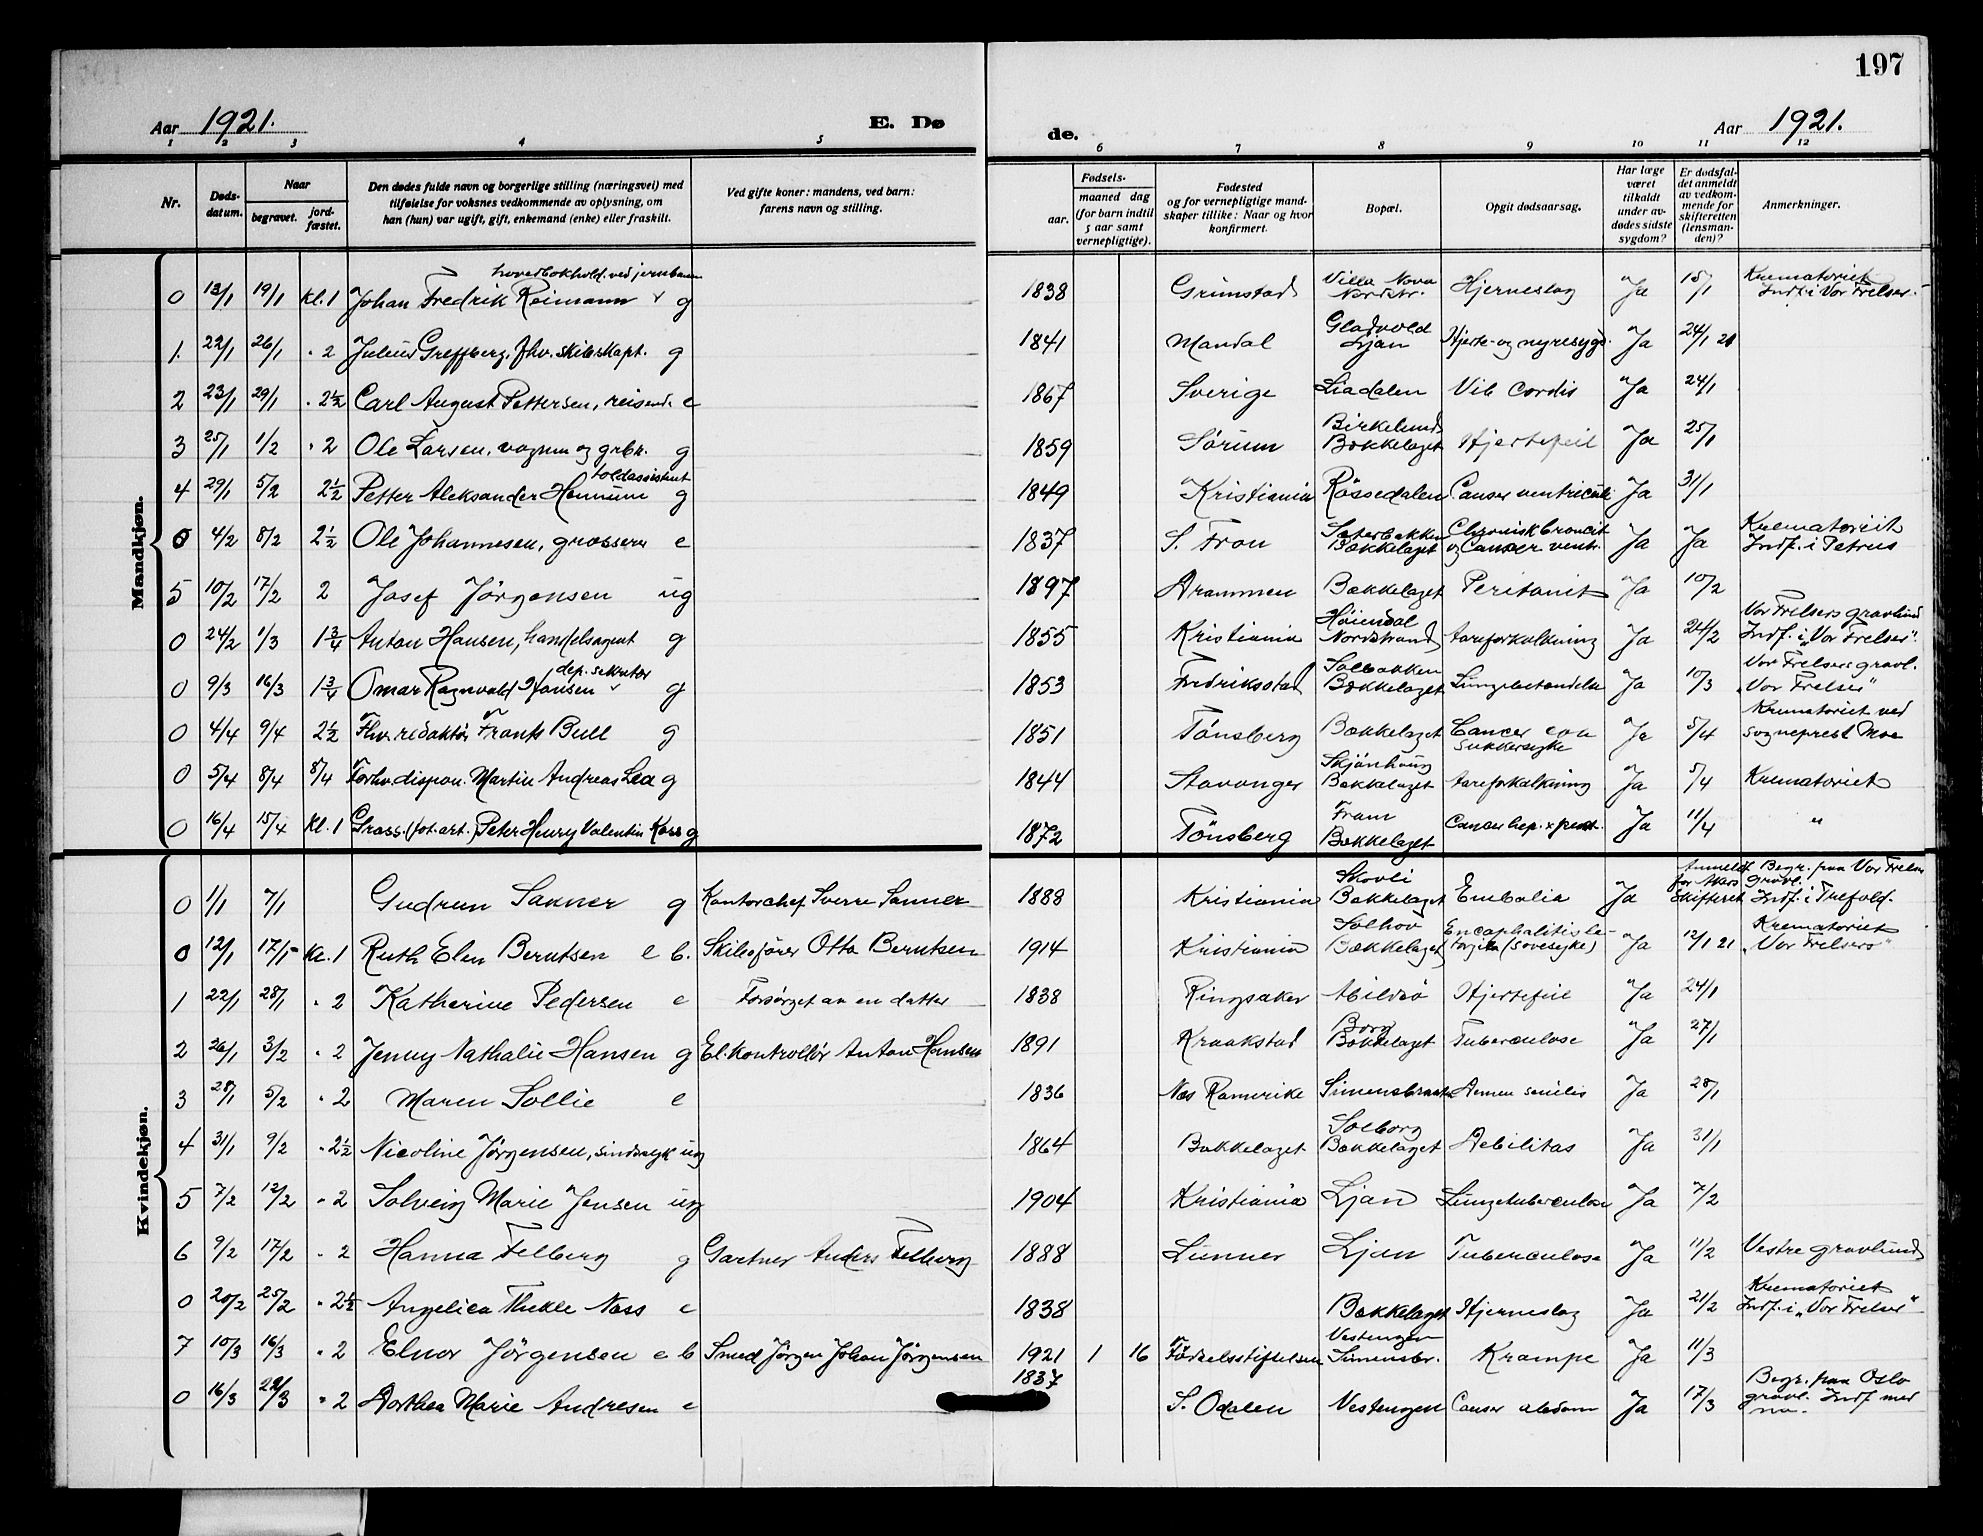 197
Aar 1921. E. Dø de. Aar 1921.
1 2 3 4 5 6 7 8 9 10 11 12
Nr.
Døds-
datum.
Naar
begravet.
jord-
fæstet.
Den dødes fulde navn og borgerlige stilling (næringsvei) med
tilføielse for voksnes vedkommende av oplysning, om
han (hun) var ugift, gift, enkemand (enke) eller fraskilt.
Ved gifte koner: mandens, ved barn:
farens navn og stilling.
Fødsels-
aar.
maaned dag
(for barn indtil
5 aar samt
vernepligtige).
Fødested
og for vernepligtige mand-
skaper tillike: Naar og hvor
konfirmert.
Bopæl.
Opgit dødsaarsag.
Har læge
været
tilkaldt
under av-
dødes sidste
sygdom?
Er dødsfal-
det anmeldt
av vedkom-
mende for
skifteretten
(lensman-
den)?
Anmerkninger.
Mandkjøn.
hovedbokhold. ved jernbanen
0 13/1 19/1 Kl. 1 Johan Fredrik Reimann g 1838 Grimstad Villa Nova Nordstr. Hjerneslag Ja 15/1 Krematoriet Indf. i Vor Frelser.
1. 22/1 26/1 " 2 Julius Greffberg, fhv. skibskapt. g 1841 Mandal Gladvold Ljan Hjerte- og nyresygd. Ja 24/1 21
2 23/1 29/1 " 2½ Carl August Pettersen, reisend. e 1867 Sverige Liadalen Vit. Cordis Ja 24/1
3 25/1 1/2 " 2 Ole Larsen, vognm. og grbr. g 1859 Sørum Birkelund Bækkelaget Hjertefeil Ja 25/1
toldassistent
4 29/1 5/2 2½ Petter Aleksander Hennum g 1849 Kristiania Røssedalen Canser ventriculi Ja 31/1
0 4/2 8/2 2½ Ole Johannesen, grosserer e 1837 S. Fron Sæterbakken Bækkelaget Chronisk broncit og Canser ventr. Ja Ja Krematoriet Indf. i Petrus
5 10/2 17/2 2 Josef Jørgensen ug 1897 Drammen Bækkelaget Peritonit Ja 10/2
0 24/2 1/3 1¾ Anton Hansen, handelsagent g 1855 Kristiania Høiendal Nordstrand Aareforkalkning Ja 24/2 Vor Frelsers gravlund Indf. i „Vor Frelser".
dep. sekretær
0 9/3 16/3 1¾ Omar Ragnvald Hansen g 1853 Fredriksstad Solbakken Bækkelaget Lungebetændelse Ja 10/3 Vor Frelsers gravl. „Vor Frelser"
0 4/4 9/4 2½ Fhv. redaktør Frants Bull g 1851 Tønsberg Bækkelaget Cancer coli Sukkersyke Ja 5/4 Krematoriet ved sogneprest Moe
0 5/4 8/4 8/4 Forhv. dispon. Martin Andreas Lea g 1844 Stavanger Skjønhaug Bækkelaget Aareforkalkning Ja 5/4 Krematoriet
0 16/4 15/4 Kl. 1 Gross. (fot. art.) Peter Henry Valentin Kass g 1872 Tönsberg Fram Bækkelaget Cancer hep. Ja 11/4 "
Kvindekjøn.
0 1/1 7/1 Gudrun Sanner g Kontorchef Sverre Sanner 1888 Kristiania Skovli Bækkelaget Embolia Ja Anmeldt for Akers Skifteret Begr. paa Vor Frelser gravl. Indf. i Trefold.
0 12/1 17/1 Kl. 1 Ruth Elen Berntsen e b. Skibsfører Otto Berntsen 1914 Kristiania Solhov Bækkelaget Encephalitis le- targica (sovesyke) Ja 12/1 21 Krematoriet „Vor Frelsers"
1 22/1 28/1 " 2 Katherine Pedersen e Forsørget av en datter 1838 Ringsaker Mildeö Hjertefeil Ja 24/1
2 26/1 3/2 " 2 Jenny Nathalie Hansen g El. kontrollör Anton Hansen 1891 Kraakstad Borg Bækkelaget Tuberculose Ja 27/1
3 28/1 5/2 " 2 Maren Sollie e 1836 Næs Romerike Simensbraaten Demen senilis Ja 28/1
4 31/1 9/2 " 2½ Nicoline Jørgensen, sindssyk ug 1864 Bækkelaget Solborg Bækkelaget Debilitas Ja 31/1
5 7/2 12/2 " 2 Solveig Marie Jensen ug 1904 Kristiania Ljan Lungetuberculose Ja 7/2
6 9/2 17/2 " 2 Hanna Felberg g Gartner Anders Felberg 1888 Lunner Ljan Tuberculose Ja 11/2 Vestre gravlund
0 20/2 25/2 " 2½ Angelica Thekle Næss e 1838 Bækkelaget Hjerneslag Ja 21/2 Krematoriet Indf. i „Vor Frelser"
7 10/3 16/3 " 2 Elnor Jørgensen e b Smed Jørgen Johan Jørgensen 1921 1 16 Fødselsstiftelsen Vestengen Simensbr. Krampe Ja 11/3
0 16/3 22/3 " 2 Dorthea Marie Andresen e 1837 S. Odalen Vestengen Canser abdom Ja 17/3 Begr. paa Oslo gravl. Indf med no.